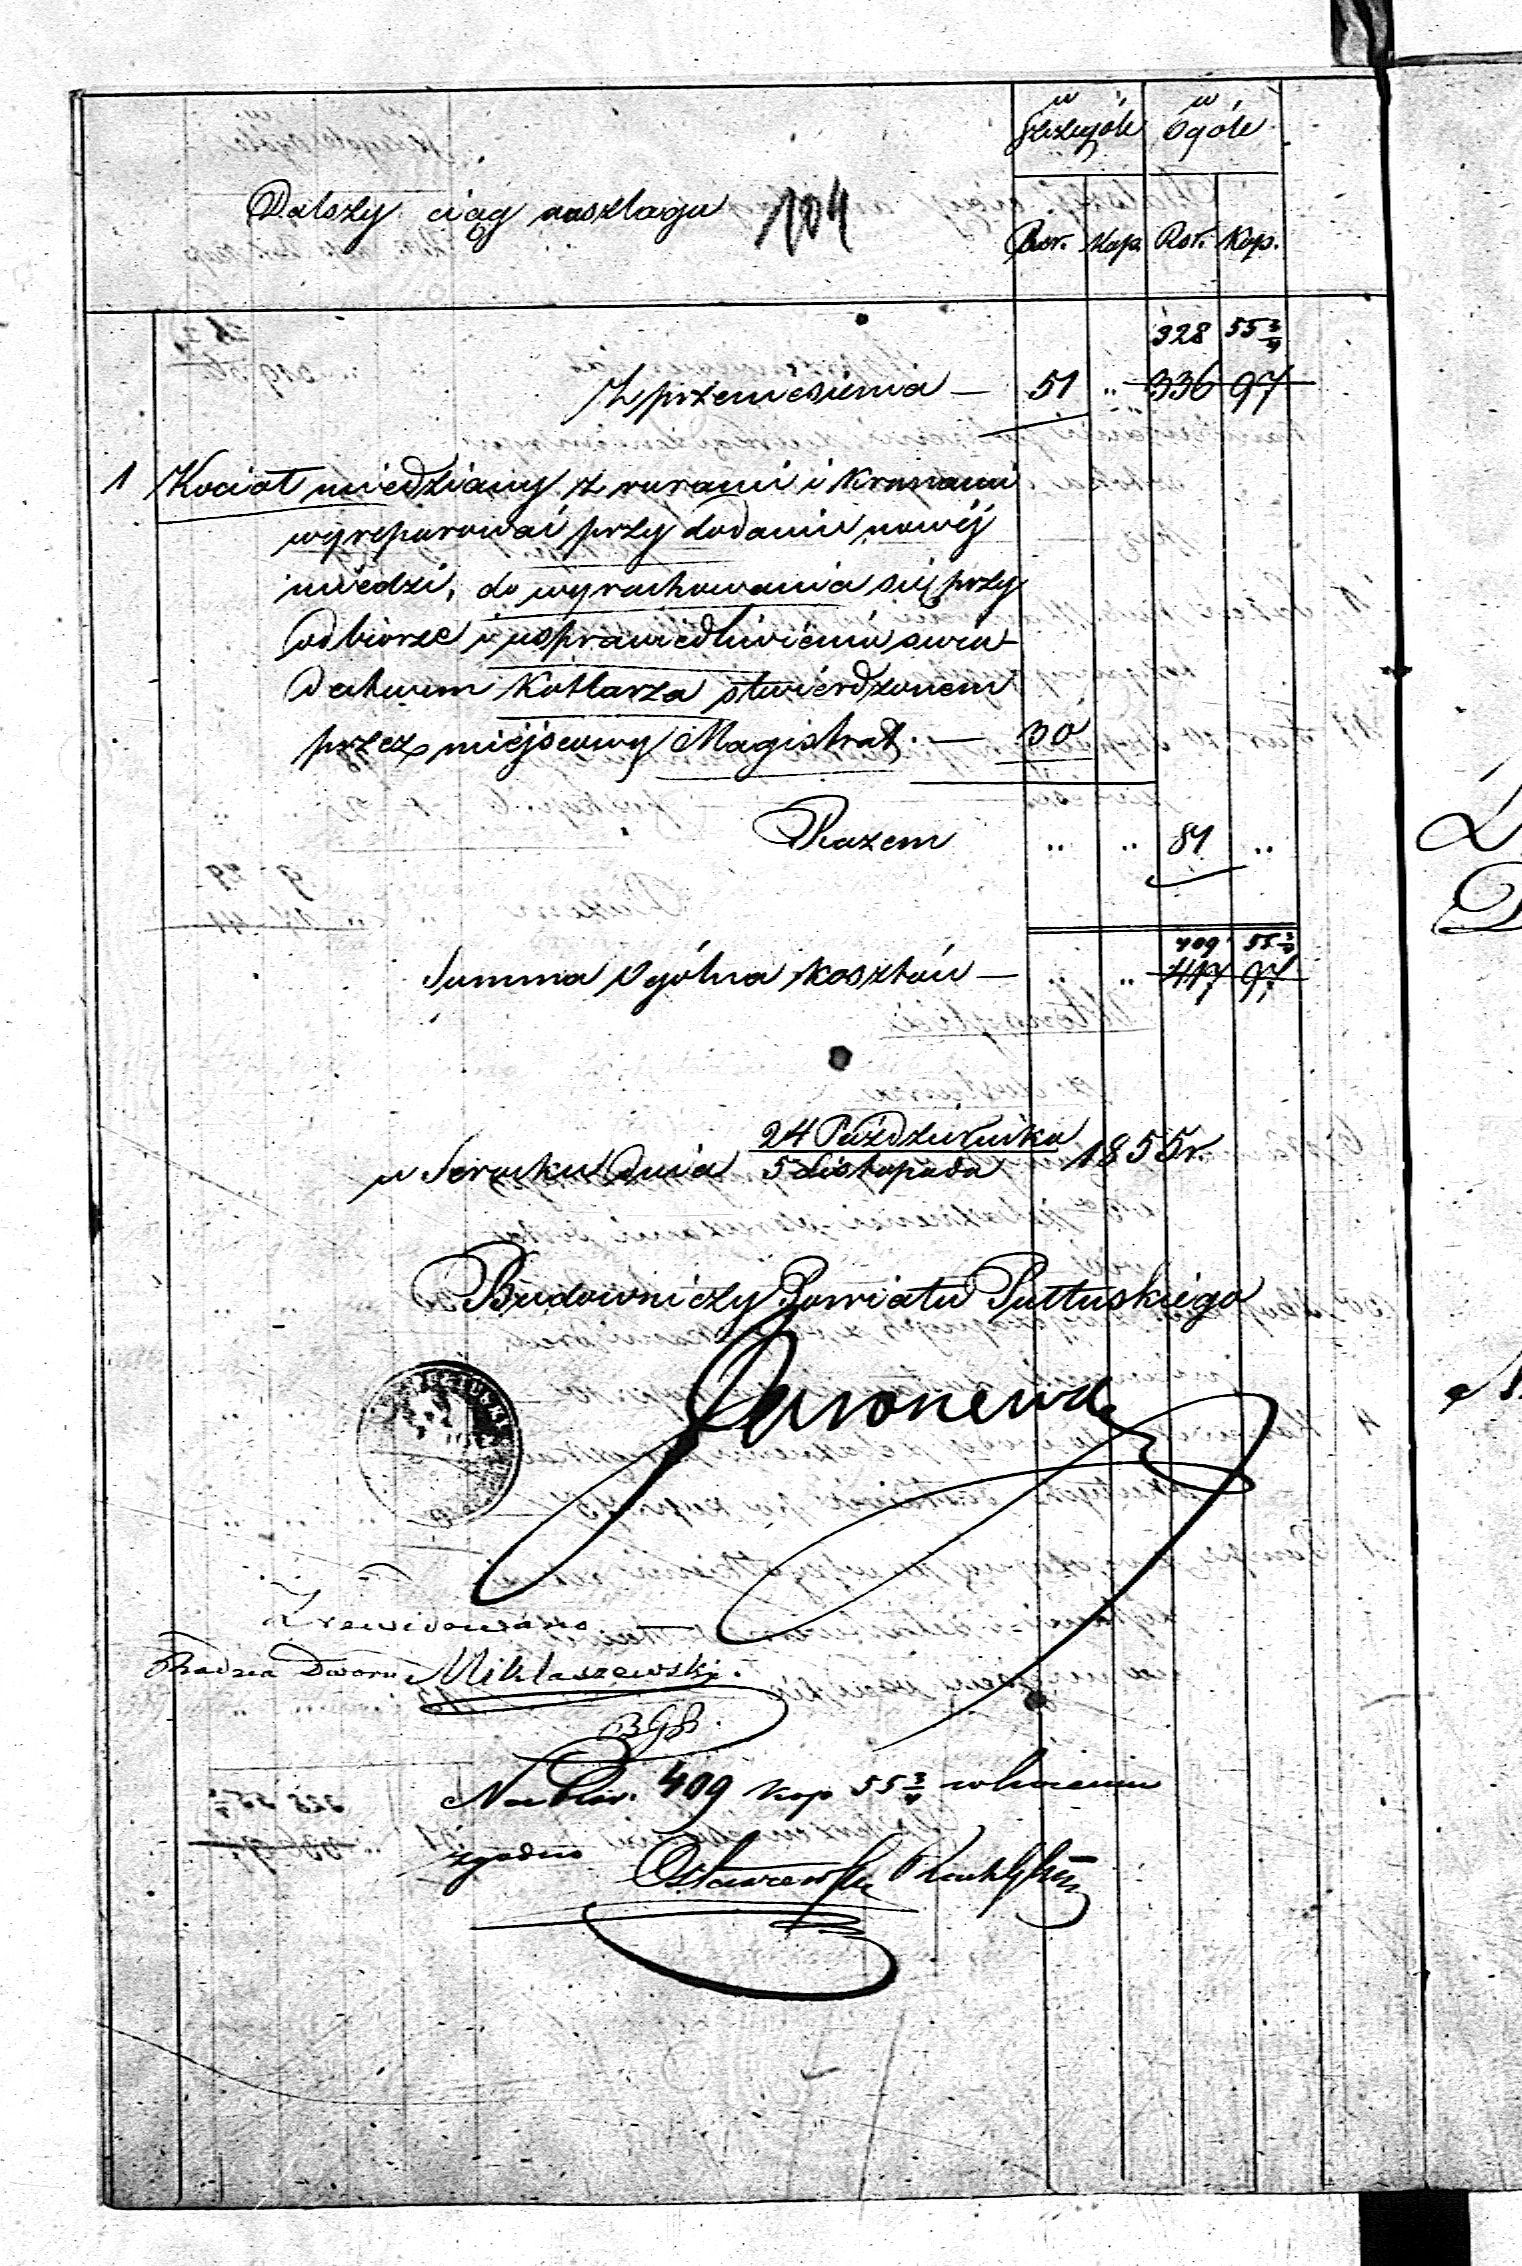 w Szczególe w Ogóle
Dalszy ciąg anszlagu 104
Rsr. Kop. Rsr. Kop.
328 55 3/4
Z przeniesienia — 51 " 336 97
1 Kocioł miedziany z rurami i kranami
wyreparować przy dodaniu nowéj
miedzi, do wyrachowania się przy
odbiorze i usprawiedliwienia świa-
dectwem Kotlarza stwierdzonem
przez miejscowy Magistrat. — 30
Razem " " 81 "
409 55 3/4
Summa Ogólna kosztów — " " 417 97
w Serocku dnia 24 Października / 5 Listopada 1855 r.
Budowniczy Powiatu Pułtuskiego
Zrewidowano
Radzca Dworu Mikłaszewski.
B.G.P.
Na Rsr. 409 kop 55 3/4
zgodno